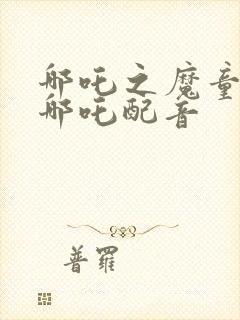 哪吒之魔童
哪吒配音
普羅